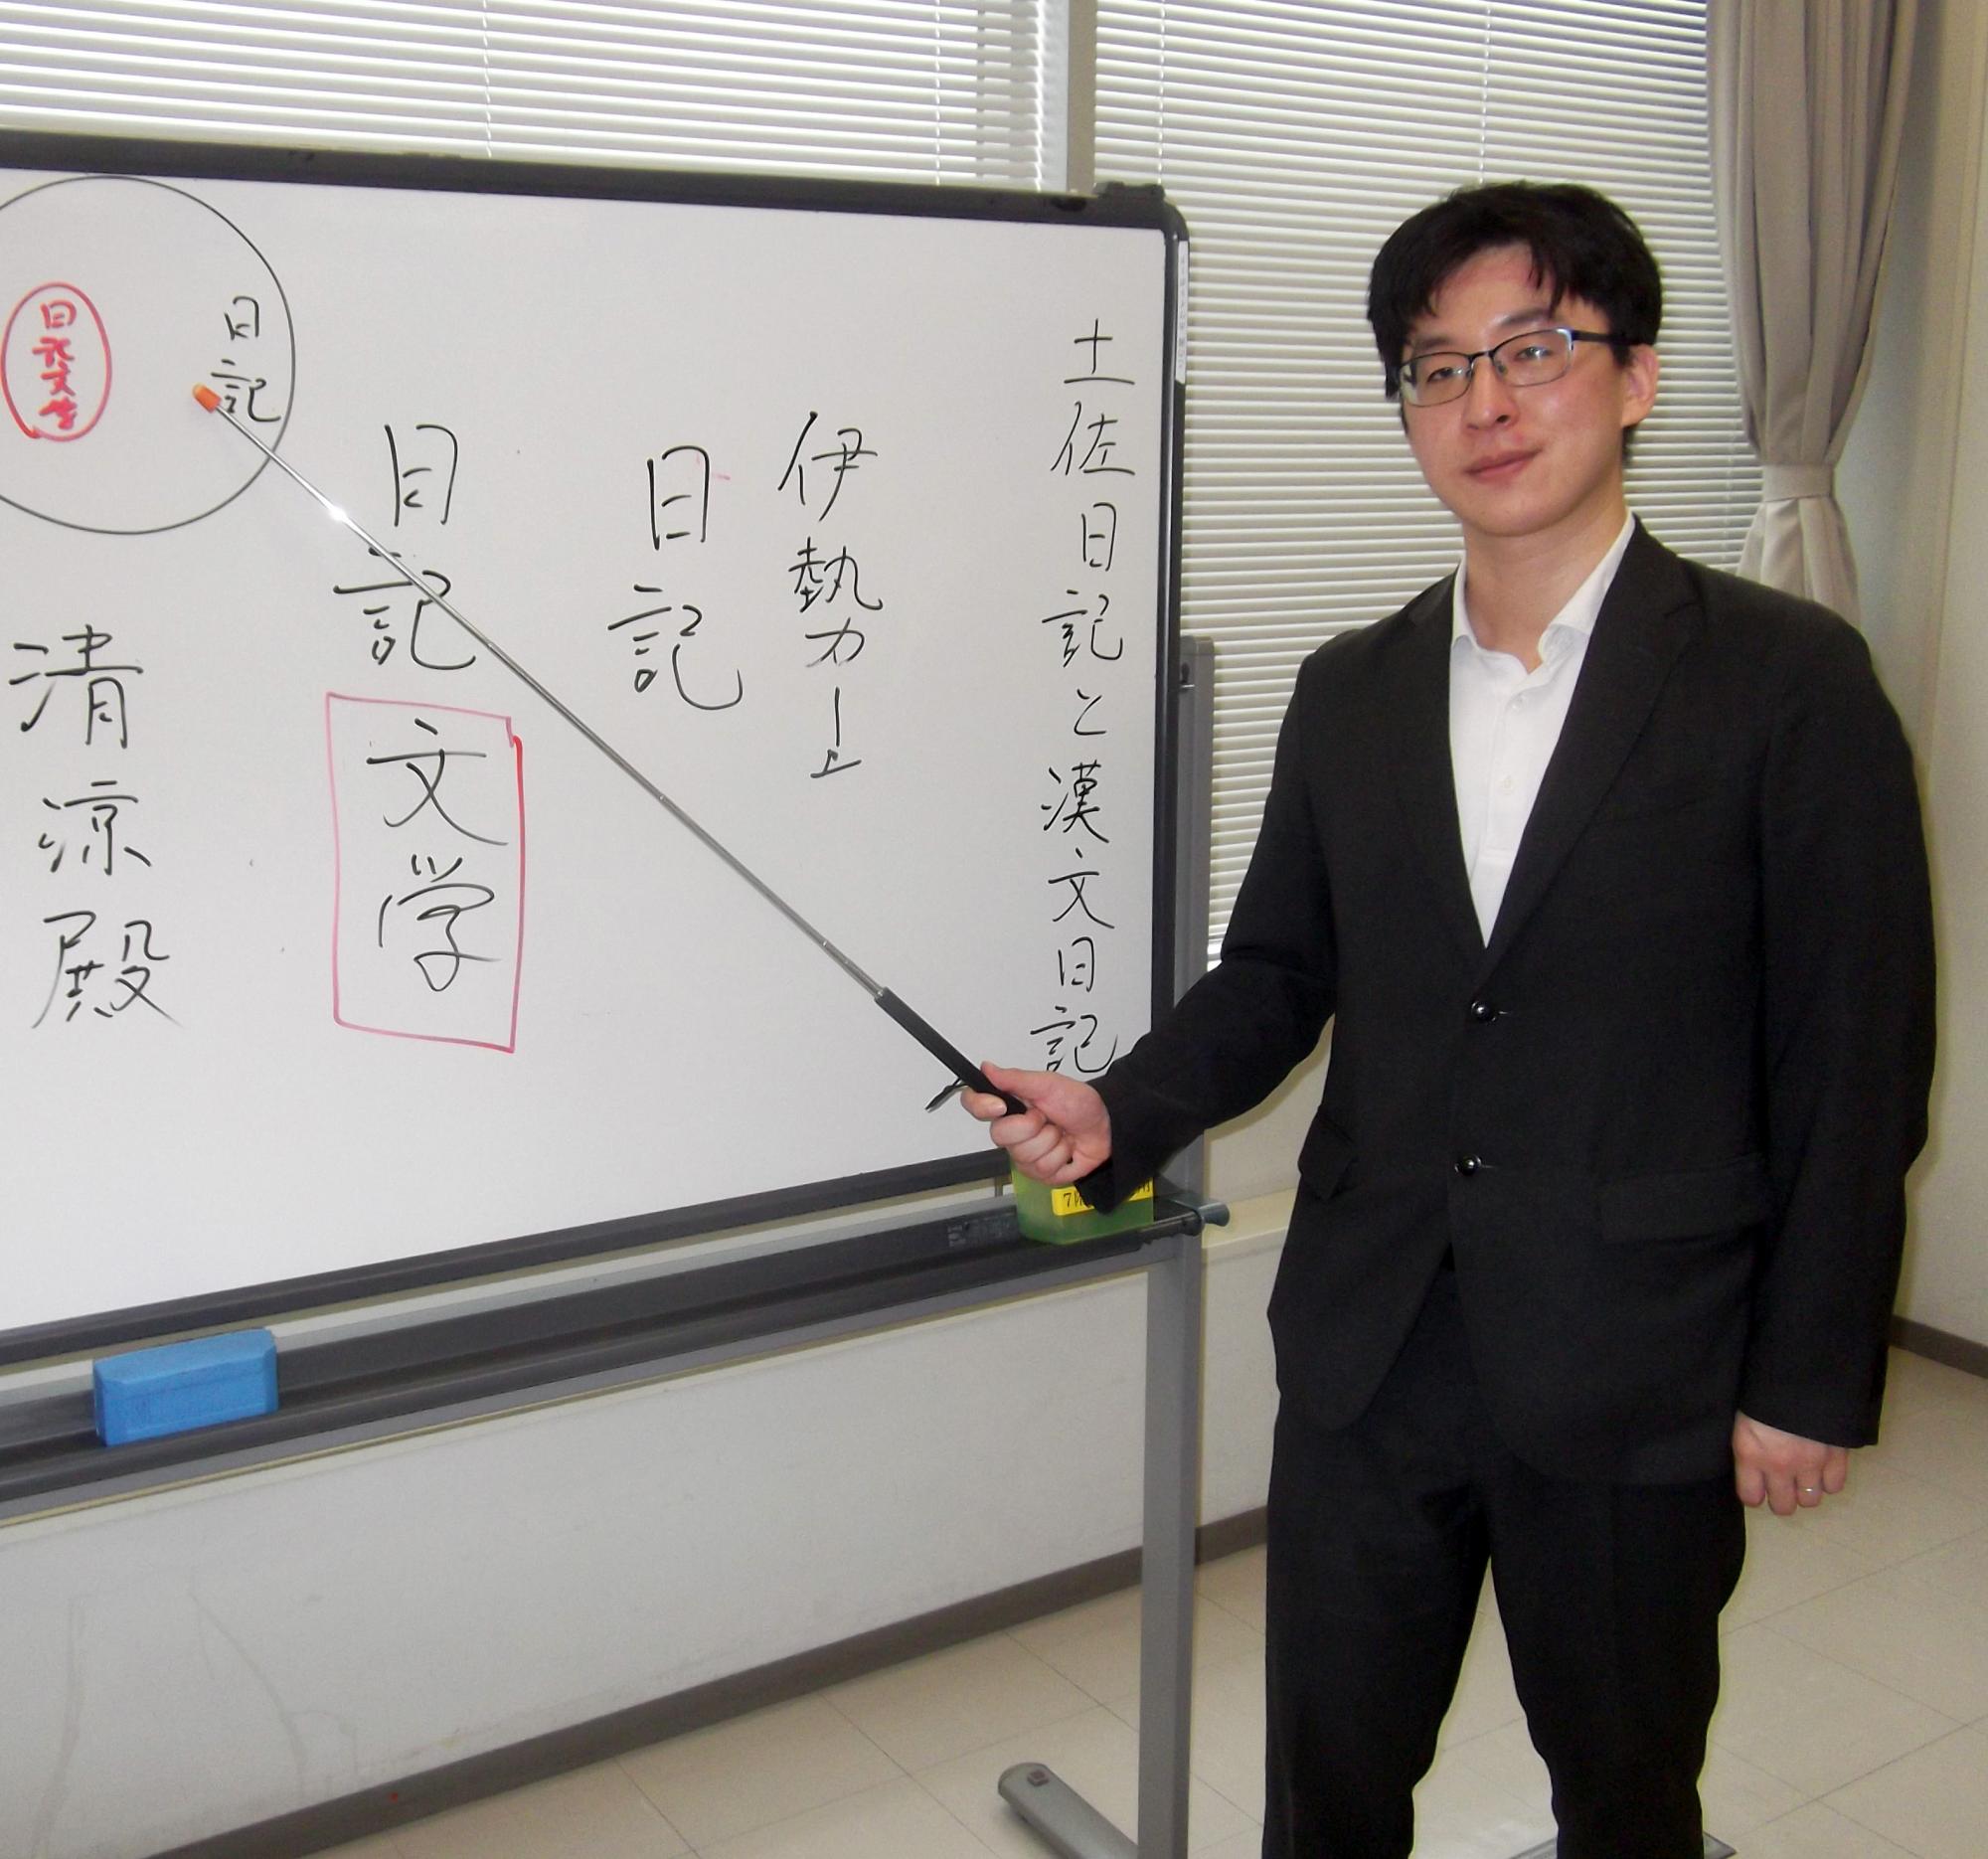 土佐日記と漢文日記
伊勢力上
日記
日記文学
日記
日記文学
清涼殿